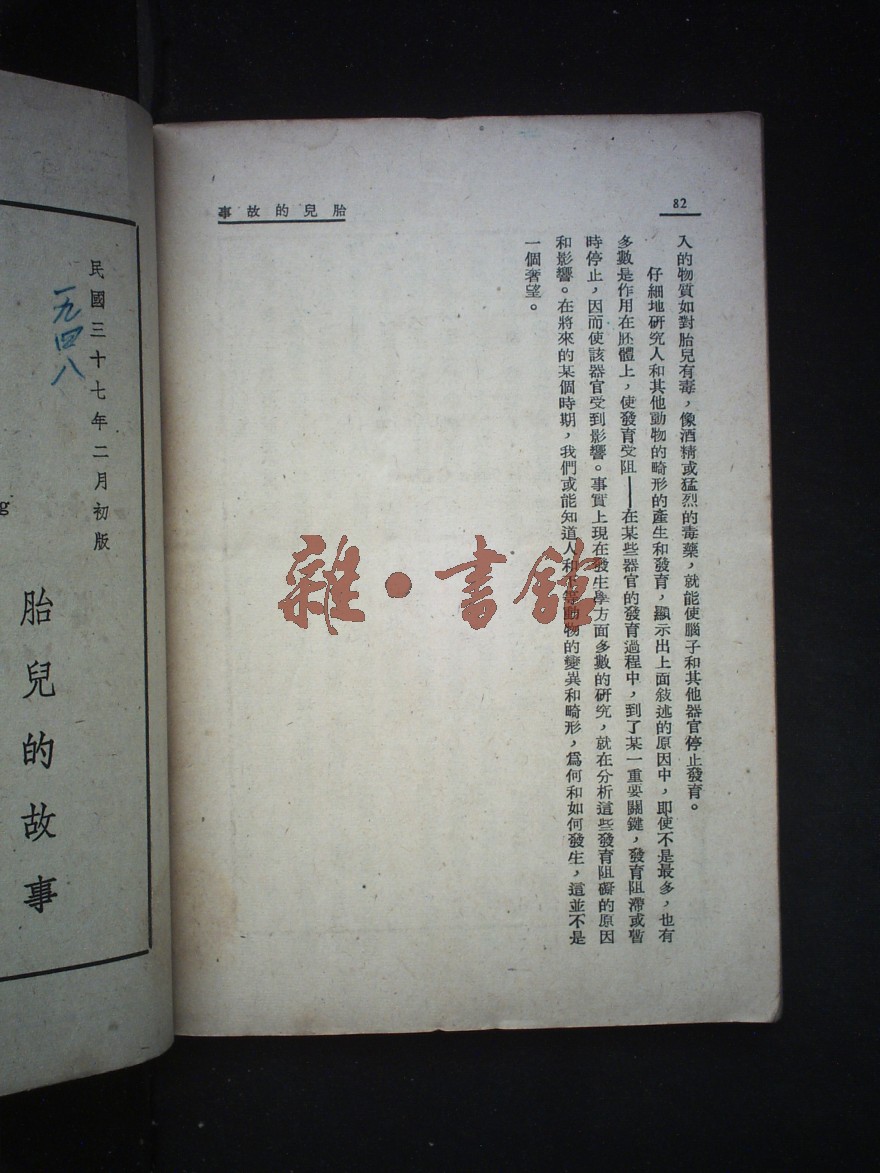 82
胎兒的故事
入的物質如對胎兒有毒，像酒精或猛烈的毒藥，就能使腦子和其他器官停止發育。
仔細地研究人和其他動物的畸形的產生和發育，顯示出上面敍述的原因中，即使不是最多，也有
多數是作用在胚體上，使發育受阻——在某些器官的發育過程中，到了某一重要關鍵，發育阻滯或暫
時停止，因而使該器官受到影響。事實上現在發生學方面多數的研究，就在分析這些發育阻礙的原因
和影響。在將來的某個時期，我們或能知道人和下等動物的變異和畸形，爲何和如何發生，這並不是
一個奢望。
民國三十七年二月初版
一九四八
胎兒的故事
g
雜·書館